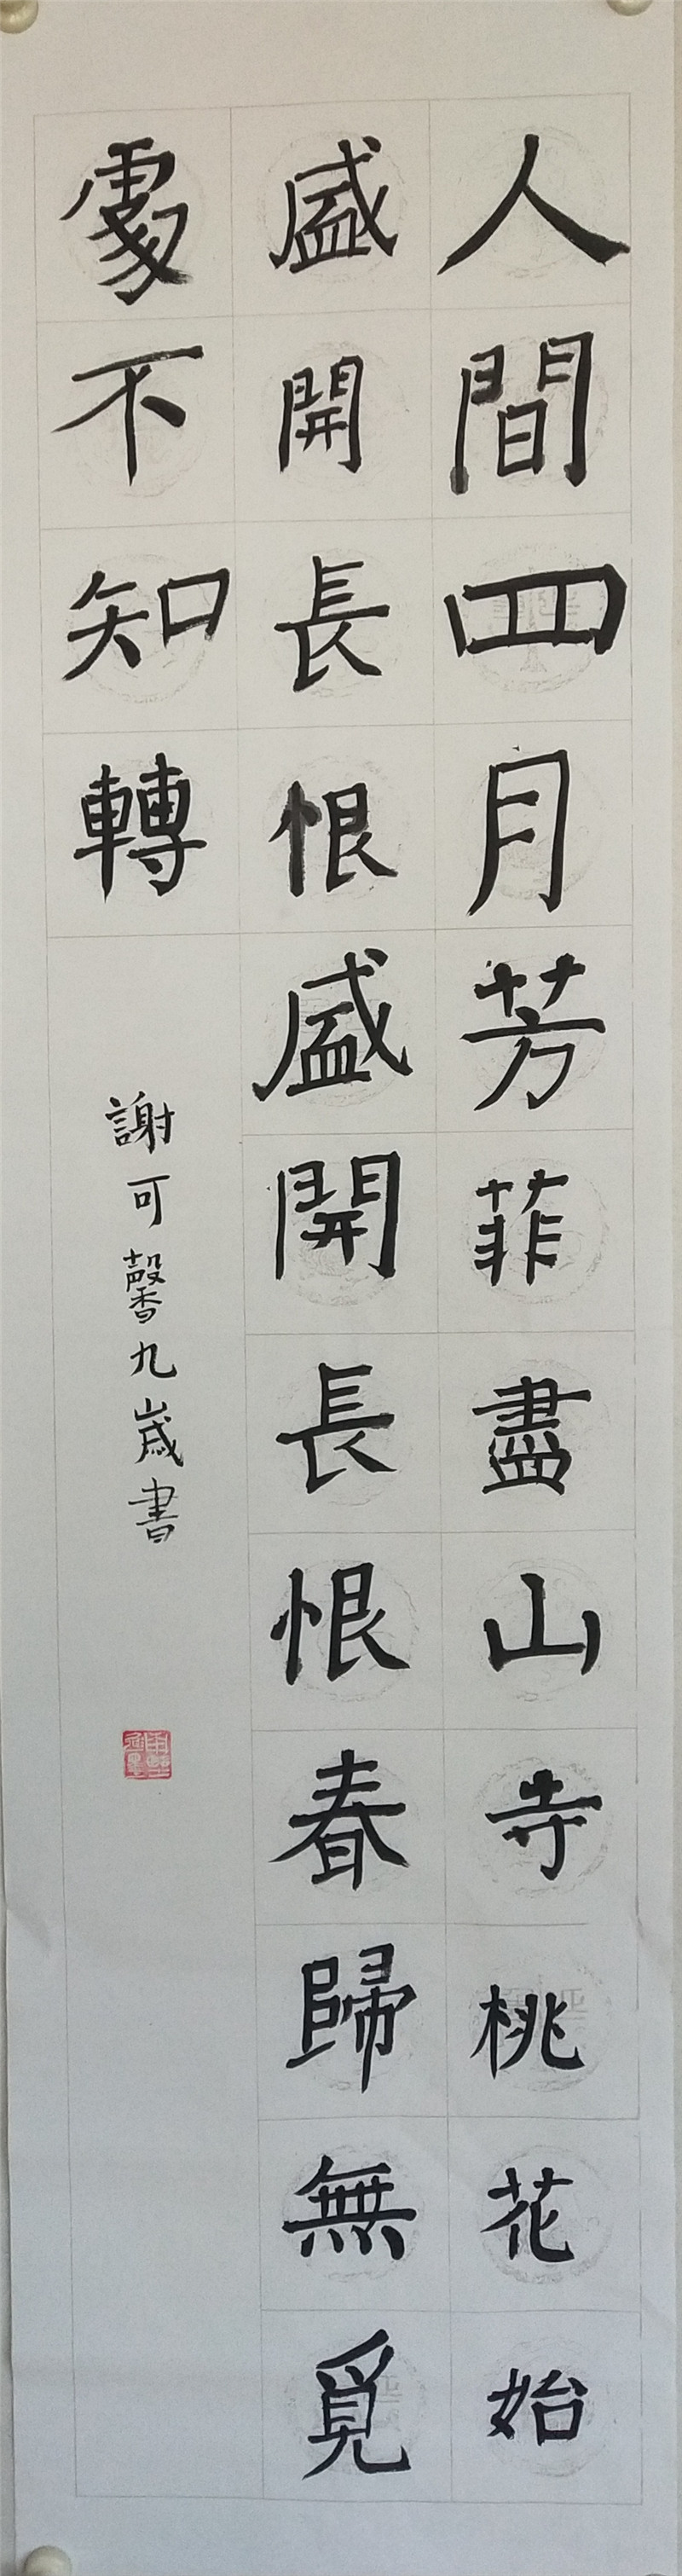 人間四月芳菲盡山寺桃花始
盛開長恨盛開長恨春歸無覓
處不知轉
謝可馨九歲書